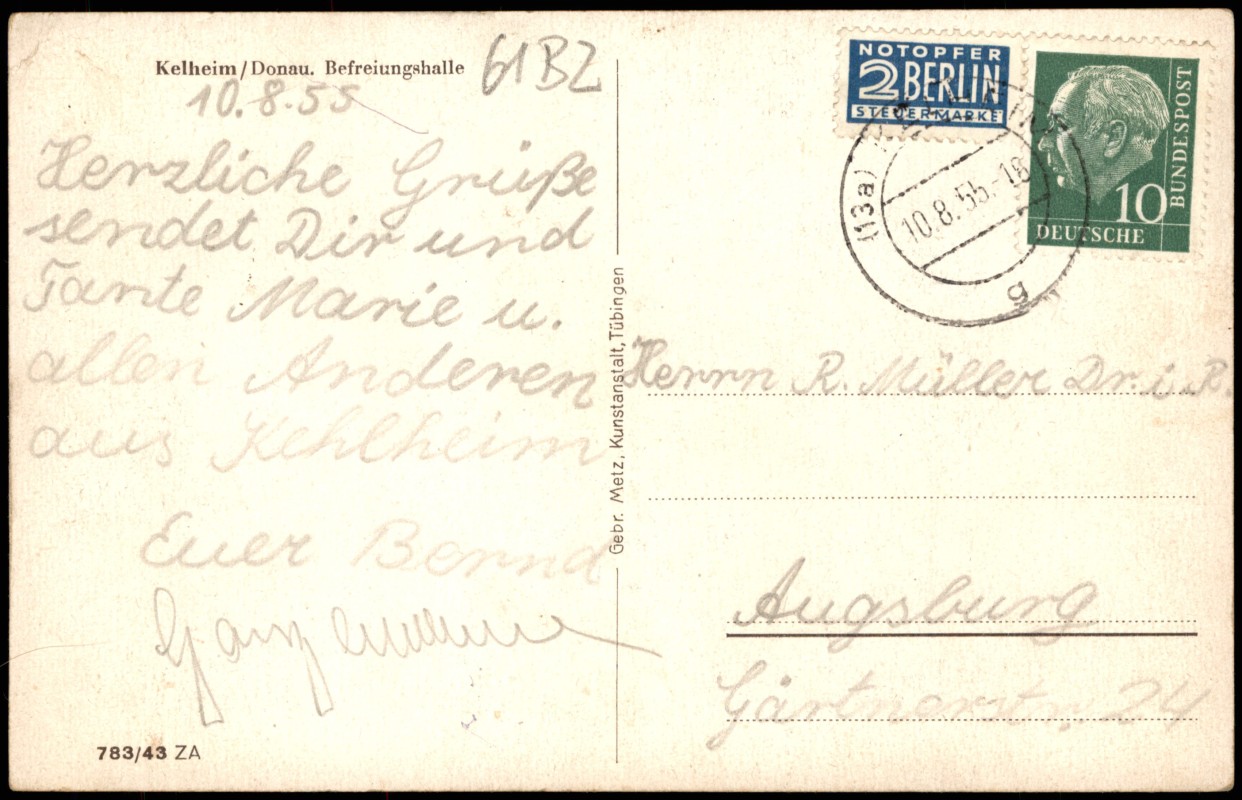 Kelheim/Donau. Befreiungshalle
61BZ
10.8.55
Herzliche Grüße
sendet Dir und
Tante Marie u.
allen Anderen
aus Kehlheim
Euer Bernd
783/43 ZA
Gebr. Metz, Kunstanstalt, Tübingen
NOTOPFER
2 BERLIN
STEUERMARKE
BUNDESPOST
10
DEUTSCHE
(13a)
10.8.55.-18
g
Herrn R. Müller Dr. i. R.
Augsburg
Gärtnerstr. 24